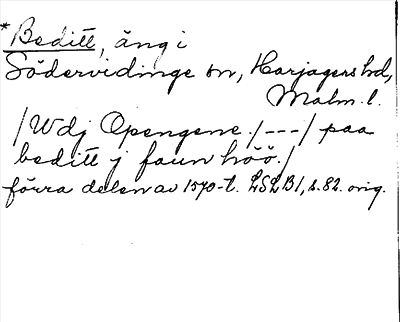 *Beditt, äng i
Södervidinge sn, Harjagers hd,
Malm. l.
/Wdj Opengene./---/ paa
beditt j faun höö./
förra delen av 1570-t. LSLB1, s. 82. orig.